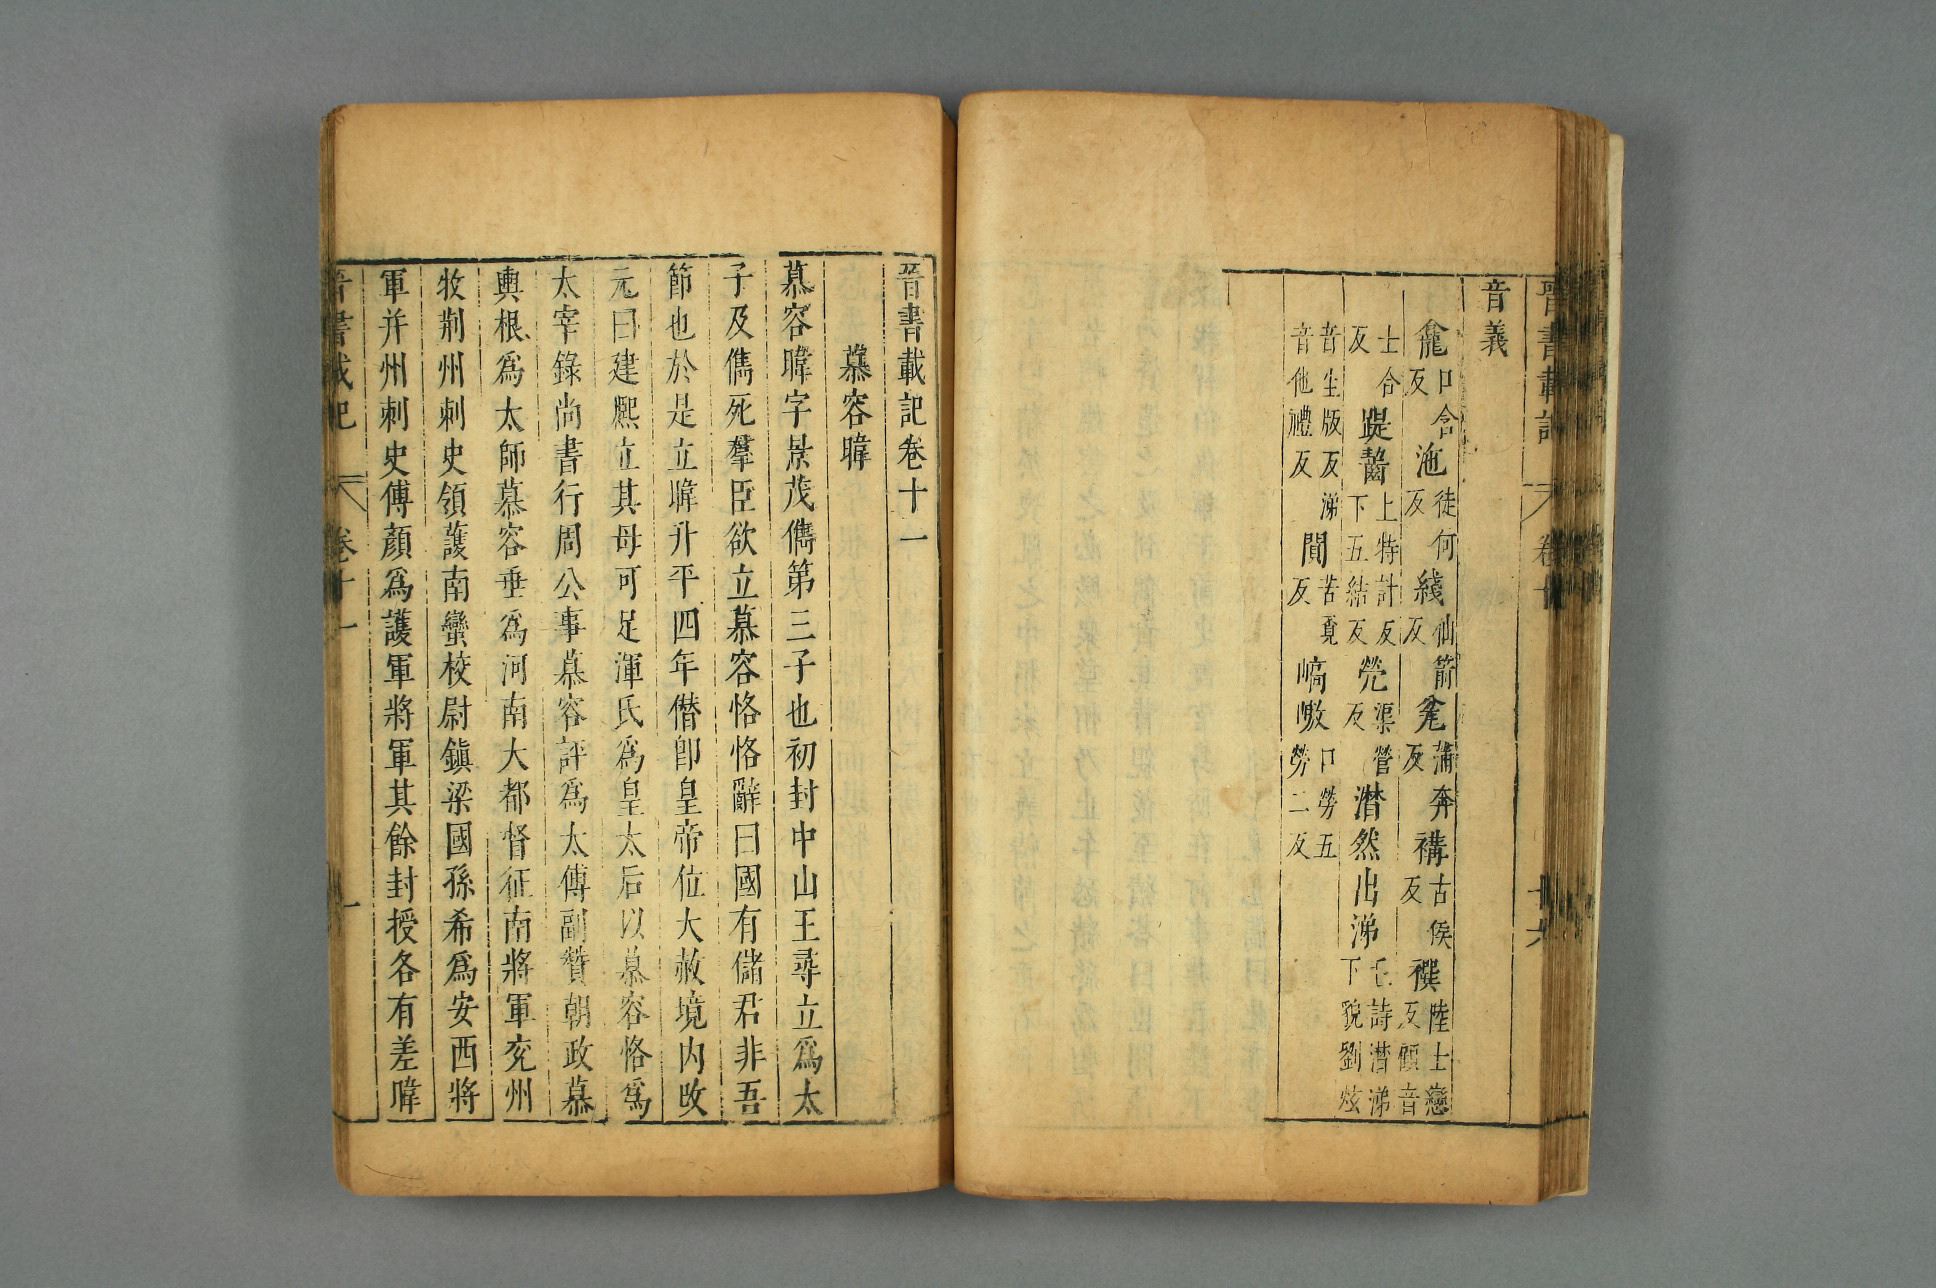 晉書載記 卷十 十六
音義
龕口含反 沲徒何反 綫仙箭反 㡋蒲奔反 褠古侯反 襈陸士戀反顧音
士合反 踶齧上特計反下五結反 焭渠營反 潸然出涕上詩潸涕下貌劉炫
音生版反涕音他禮反 閴苦覔反 嵪嶅口勞五勞二反
晉書載記卷十一
慕容暐
慕容暐字景茂儁第三子也初封中山王尋立爲太
子及儁死羣臣欲立慕容恪恪辭曰國有儲君非吾
節也於是立暐升平四年僭卽皇帝位大赦境内改
元曰建熙立其母可足渾氏爲皇太后以慕容恪爲
太宰錄尚書行周公事慕容評爲太傅副贊朝政慕
輿根爲太師慕容垂爲河南大都督征南將軍兖州
牧荆州刺史領護南蠻校尉鎭梁國孫希爲安西將
軍并州刺史傅顔爲護軍將軍其餘封授各有差暐
晉書載記 卷十一 一